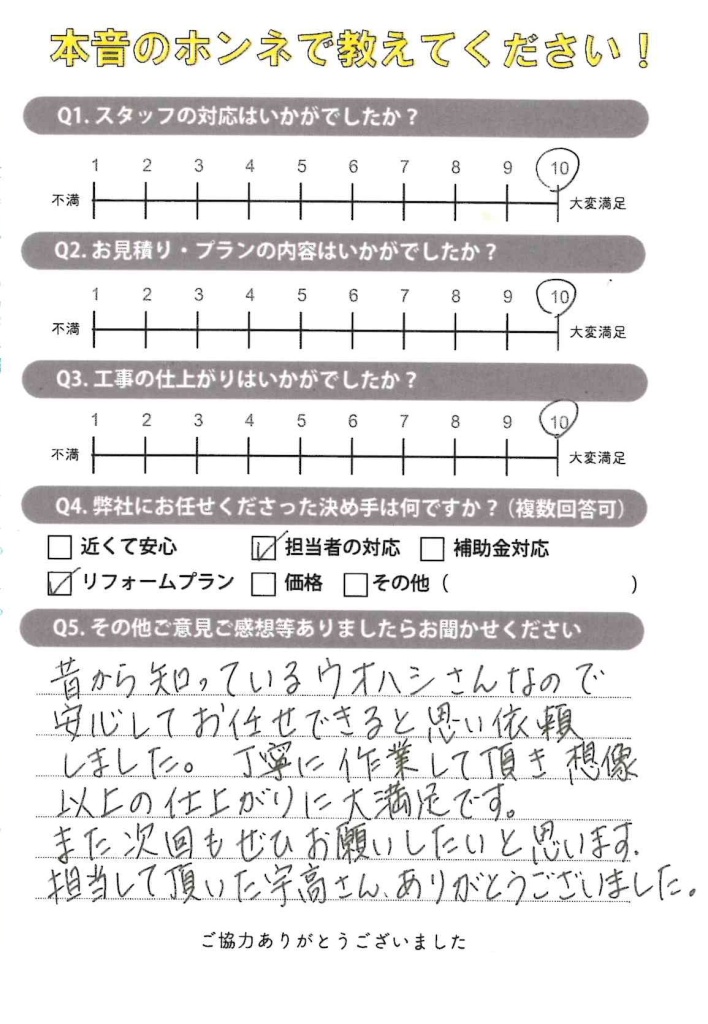 本音のホンネで教えてください！
Q1. スタッフの対応はいかがでしたか？
1 2 3 4 5 6 7 8 9 10
不満 大変満足
Q2. お見積り・プランの内容はいかがでしたか？
1 2 3 4 5 6 7 8 9 10
不満 大変満足
Q3. 工事の仕上がりはいかがでしたか？
1 2 3 4 5 6 7 8 9 10
不満 大変満足
Q4. 弊社にお任せくださった決め手は何ですか？（複数回答可）
□ 近くて安心 ☑ 担当者の対応 □ 補助金対応
☑ リフォームプラン □ 価格 □ その他（ ）
Q5. その他ご意見ご感想等ありましたらお聞かせください
昔から知っているウオハシさんなので
安心してお任せできると思い依頼
しました。丁寧に作業して頂き想像
以上の仕上がりに大満足です。
また次回もぜひお願いしたいと思います.
担当して頂いた宇高さん、ありがとうございました。
ご協力ありがとうございました